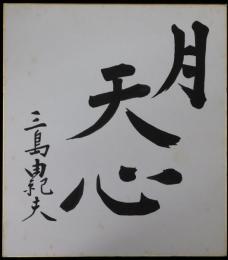 月
天心
三島由紀夫